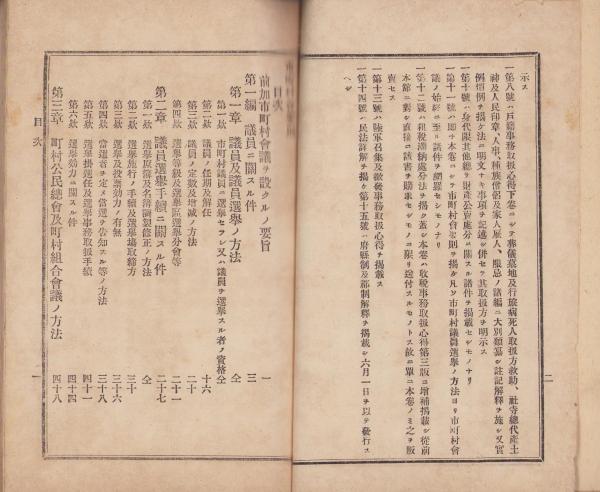 示ス
一第八號ハ戶籍事務取扱心得下卷ニシテ葬儀墓地及行旅病死人取扱方救助、社寺總代產土
神及人民印章、人事、種族僧侶及家人雇人、服忌ノ諸編ニ大別類纂シ註記解釋ヲ施シ又實
例煩例ヲ揭ケ法ニ明文ナキ事項ヲ記述シ併セテ其取扱方ヲ明示ス
一第十號ハ身代限其他總テ財產公賣處分ニ關スル諸件ヲ揭載セシモノナリ
一第十一號ハ即チ本卷ニシテ市町村會規則ヲ揭ケ凡ソ市町村議員選舉ノ方法ヨリ市町村會
議ノ始終ニ至ル諸件ヲ網羅セシモノナリ
一第十二號ハ租稅滯納處分法ヲ揭ク蓋シ本卷ハ收稅事務取扱心得第三版ニ增補揭載シ從前
本館ニ對シ直接ニ該書ヲ購求セシモノニ限リ送付スルモノトス故ニ單ニ本卷ノミ之ヲ販
賣セス
一第十三號ハ陸軍召集及徵發事務取扱心得ヲ揭載ス
一第十四號ハ民法詳解ヲ揭ケ第十五號ハ府縣制及郡制解釋ヲ揭載シ六月一日ヲ以テ發行ス
ヘシ
二
目次
前加市町村會議ヲ設クルノ要旨 一
第一編 議員ニ關スル件 三
第一章 議員及議員選舉ノ方法 仝
第一欵 市町村議員ニ選舉セラレ又ハ議員ヲ選舉スル者ノ資格 仝
第二欵 議員ノ任期及解任 十六
第三欵 議員ノ定數及增減ノ方法 二十
第四欵 選舉等級及選舉區選舉分會等 二十一
第二章 議員選舉手續ニ關スル件 二十七
第一欵 選舉原簿及名簿調製修正ノ方法 仝
第二欵 選舉施行ノ手續及選舉塲取締方 三十
第三欵 選舉及投票効力ノ有無 三十六
第四欵 當選者ヲ定メ當選ヲ告知スル等ノ方法 三十八
第五欵 選舉掛選任及選舉事務取扱手續 四十一
第六欵 選舉効力ニ關スル件 四十四
第三章 町村公民總會及町村組合會議ノ方法 四十八
目次
一